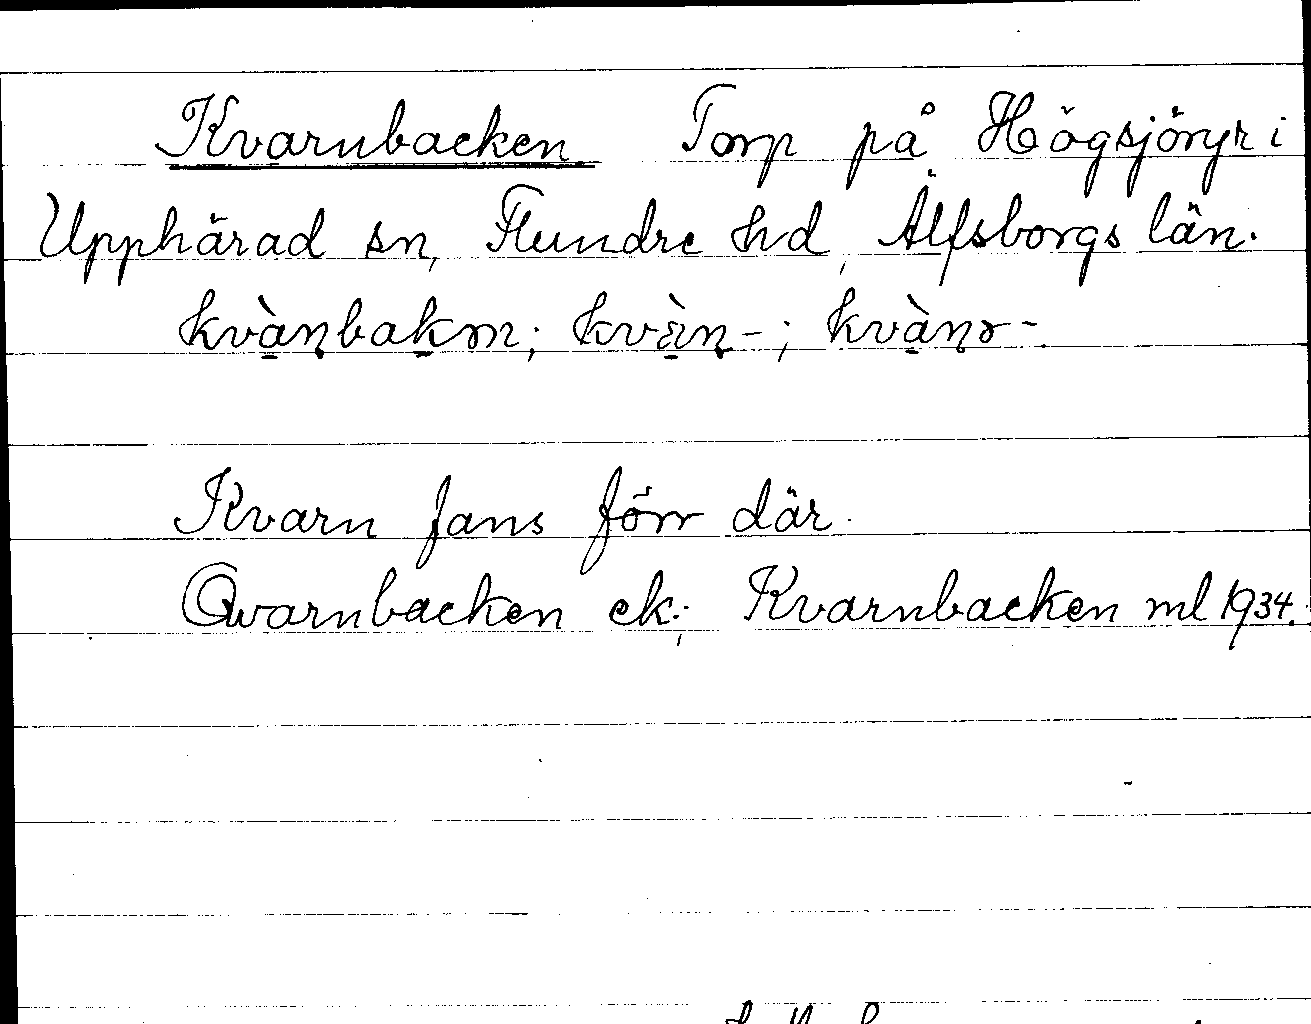 Kvarnbacken Torp på Högsjöryr i
Upphärad sn, Flundre hd, Älfsborgs län.
kvànbakm; kvä̀n-; kvànr-.
Kvarn fans förr där.
Qvarnbacken ek.; Kvarnbacken ml 1934.